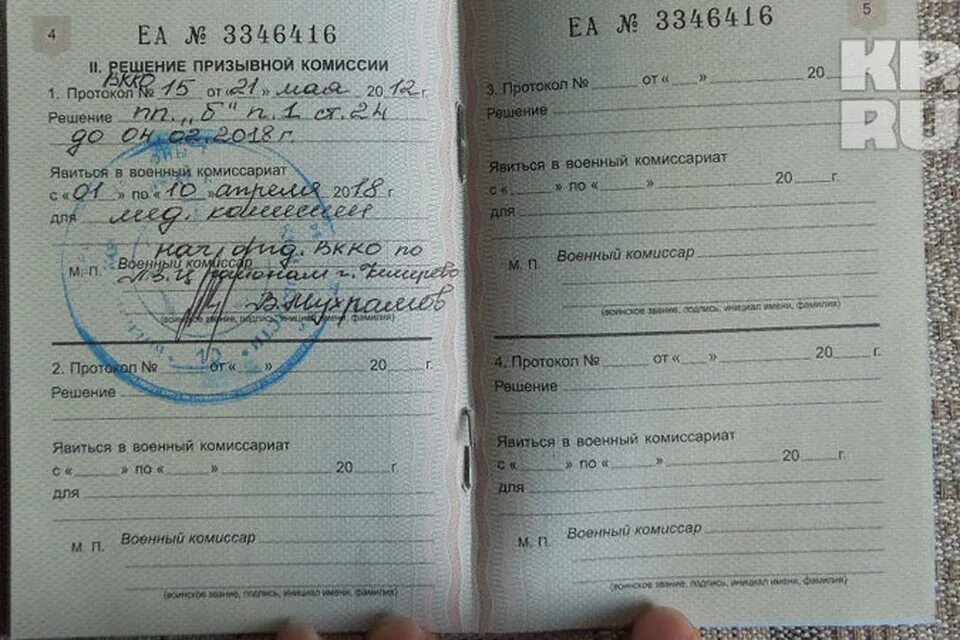 4
ЕА № 3346416
II. РЕШЕНИЕ ПРИЗЫВНОЙ КОМИССИИ
ВККО
1. Протокол № 15 от «21» мая 2012 г.
Решение пп. „Б" п. 1 ст. 24
до 04.02.2018 г.
Явиться в военный комиссариат
с «01» по «10» апреля 2018 г.
для мед. комиссии
нач. отд. ВККО по
М. П. Военный комиссар
районам г. Кемерово
В. Мухрамов
(воинское звание, подпись, инициал имени, фамилия)
2. Протокол № от « » 20 г.
Решение
Явиться в военный комиссариат
с « » по « » 20 г.
для
М. П. Военный комиссар
(воинское звание, подпись, инициал имени, фамилия)
5
ЕА № 3346416
3. Протокол № от « » 20 г.
Решение
Явиться в военный комиссариат
с « » по « » 20 г.
для
М. П. Военный комиссар
(воинское звание, подпись, инициал имени, фамилия)
4. Протокол № от « » 20 г.
Решение
Явиться в военный комиссариат
с « » по « » 20 г.
для
М. П. Военный комиссар
(воинское звание, подпись, инициал имени, фамилия)
KP
RU